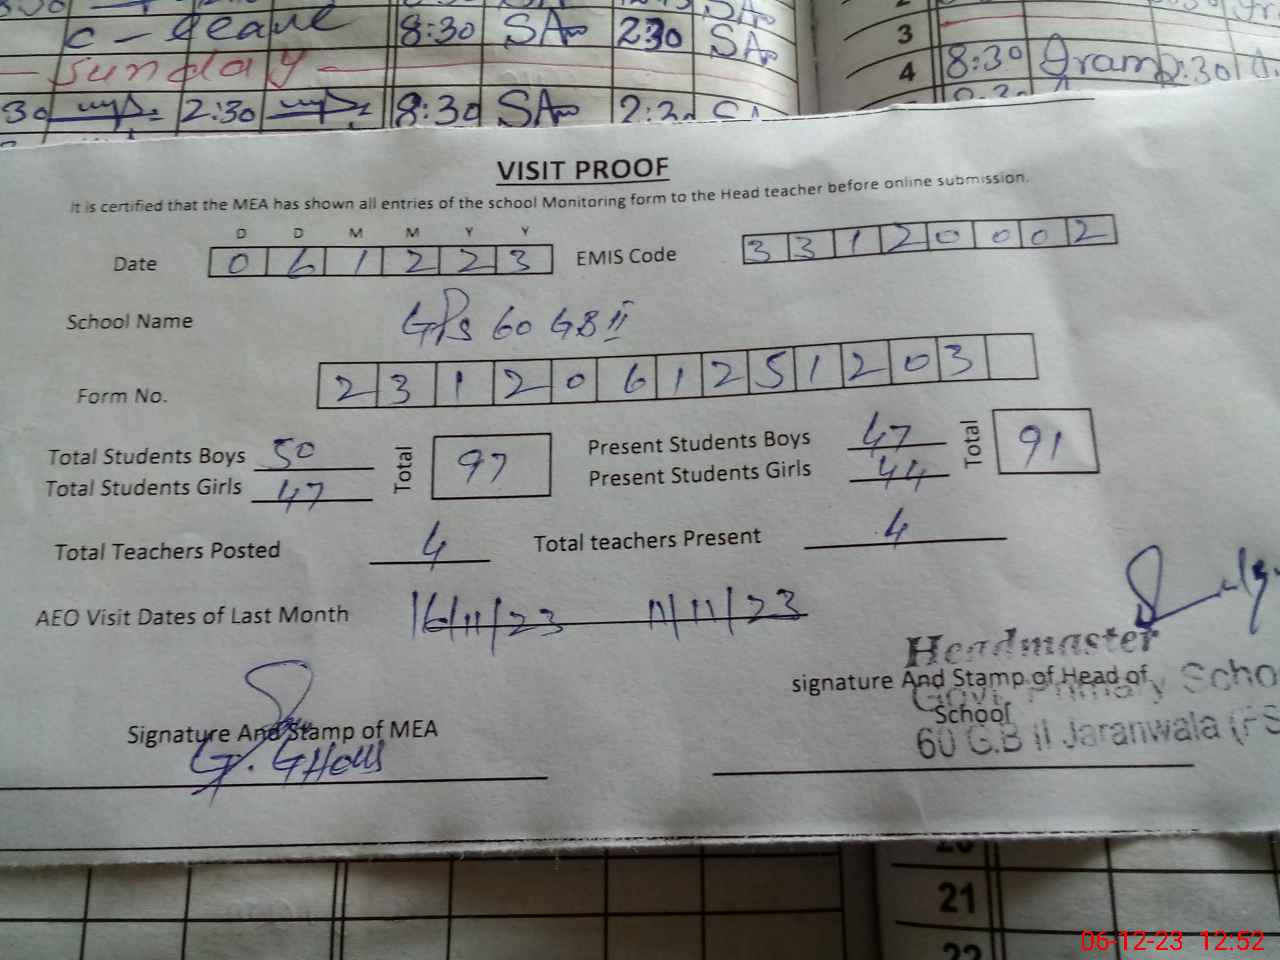 C - Leave 8:30 SA 2:30 SA
Sunday
30 2:30 8:30 SA 2:3
3
4 8:30 Iram 2:30
VISIT PROOF
It is certified that the MEA has shown all entries of the school Monitoring form to the Head teacher before online submission.
D D M M Y Y
Date 0 6 1 2 2 3 EMIS Code 3 3 1 2 0 0 0 2
School Name GPS 60 GB II
Form No. 2 3 1 2 0 6 1 2 5 1 2 0 3
Total Students Boys 50 Total 97 Present Students Boys 47 Total 91
Total Students Girls 47 Present Students Girls 44
Total Teachers Posted 4 Total teachers Present 4
AEO Visit Dates of Last Month 16/11/23 11/11/23
Headmaster
signature And Stamp of Head of
Govt. Primary Scho
School
60 G.B II Jaranwala (FS
Signature And Stamp of MEA
21
22
06-12-23 12:52